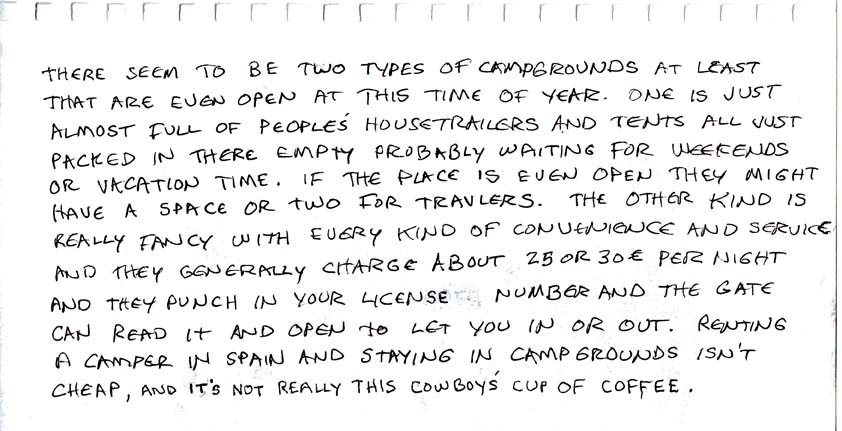 THERE SEEM TO BE TWO TYPES OF CAMPGROUNDS AT LEAST
THAT ARE EVEN OPEN AT THIS TIME OF YEAR. ONE IS JUST
ALMOST FULL OF PEOPLE'S HOUSETRAILERS AND TENTS ALL JUST
PACKED IN THERE EMPTY PROBABLY WAITING FOR WEEKENDS
OR VACATION TIME. IF THE PLACE IS EVEN OPEN THEY MIGHT
HAVE A SPACE OR TWO FOR TRAVLERS. THE OTHER KIND IS
REALLY FANCY WITH EVERY KIND OF CONVENIENCE AND SERVICE
AND THEY GENERALLY CHARGE ABOUT 25 OR 30€ PER NIGHT
AND THEY PUNCH IN YOUR LICENSE NUMBER AND THE GATE
CAN READ IT AND OPEN TO LET YOU IN OR OUT. RENTING
A CAMPER IN SPAIN AND STAYING IN CAMPGROUNDS ISN'T
CHEAP, AND IT'S NOT REALLY THIS COWBOY'S CUP OF COFFEE.